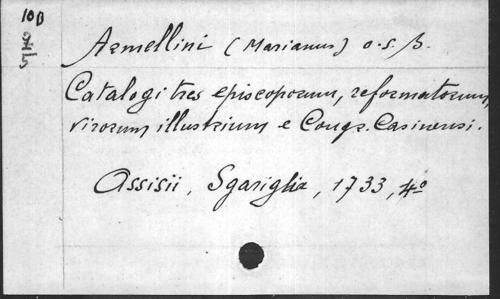 10B
Armellini (Marianus) o.s.B.
Catalogi tres episcoporum, reformatorum,
virorum illustrium e Congr. Casinensi.
Assisii, Sgariglia, 1733, 4º